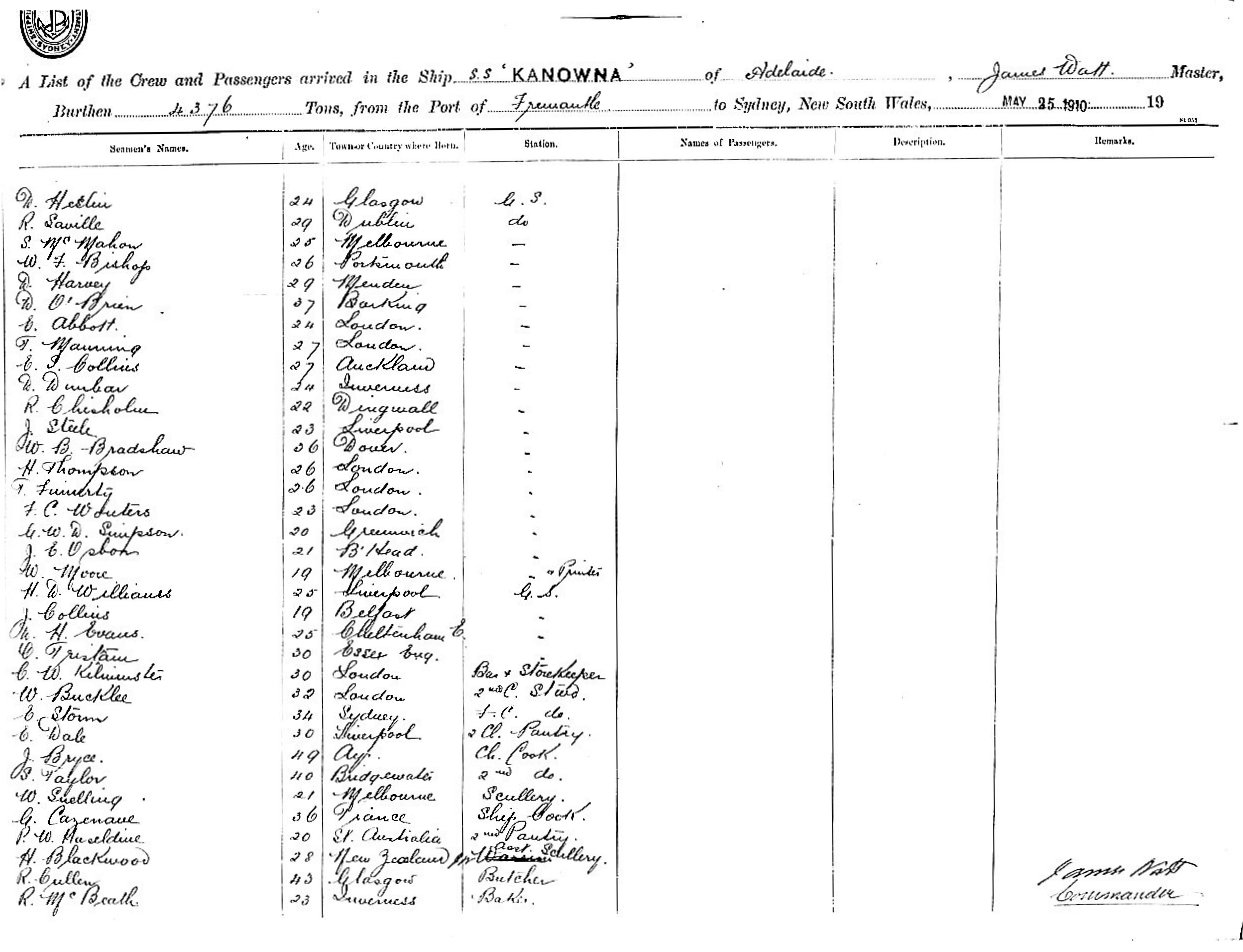 SYDNEY
A List of the Crew and Passengers arrived in the Ship S.S 'KANOWNA' of Adelaide. , James Watt. Master,
Burthen 4376 Tons, from the Port of Fremantle to Sydney, New South Wales, MAY 25 1910 19
Seamen's Names. Age. Town or Country where Born. Station. Names of Passengers. Description. Remarks.
24 Glasgow G. S.
R. Saville 29 Dublin do
S. McMahon 25 Melbourne —
W. F. Bishop 26 Portsmouth —
D. Harvey 29 —
D. O'Brien 37 Barking —
E. Abbott. 24 London. —
T. Manning 27 London. -
Collins 27 Auckland -
D. Dunbar 24 Inverness -
R. Chisholm 22 Dingwall -
J. Steele 23 Liverpool -
W. B. Bradshaw 36 Dover. -
H. Thompson 26 London. -
T. Finnerty 26 London. -
F. C. Winters 23 London. -
G. W. D. Simpson. 20 Greenwich -
J. E. Osborn 21 B'Head. -
W. Moore 19 Melbourne. " Printer
H. D. Williams 25 Liverpool G. S.
J. Collins 19 Belfast -
H. Evans. 25 Cheltenham E. -
C. Tristam 30 Essex Eng. -
C. W. Kilminster 30 London Bar & Storekeeper
W. Bucklee 32 London 2nd C. Stwd.
E. Storm 34 Sydney. F. C. do.
E. Dale 30 Liverpool 2 Cl. Pantry.
J. Bryce. 49 Ayr. Ch. Cook.
S. Taylor 40 Bridgewater 2nd do.
W. Snelling 21 Melbourne Scullery.
G. Cazenave 36 France Ship Cook.
P. W. Haseldine 20 St. Australia 2nd Pantry.
H. Blackwood 28 New Zealand asst. Scullery.
R. Cullen 43 Glasgow Butcher
R. McBeath 23 Inverness Baker.
James Watt
Commander